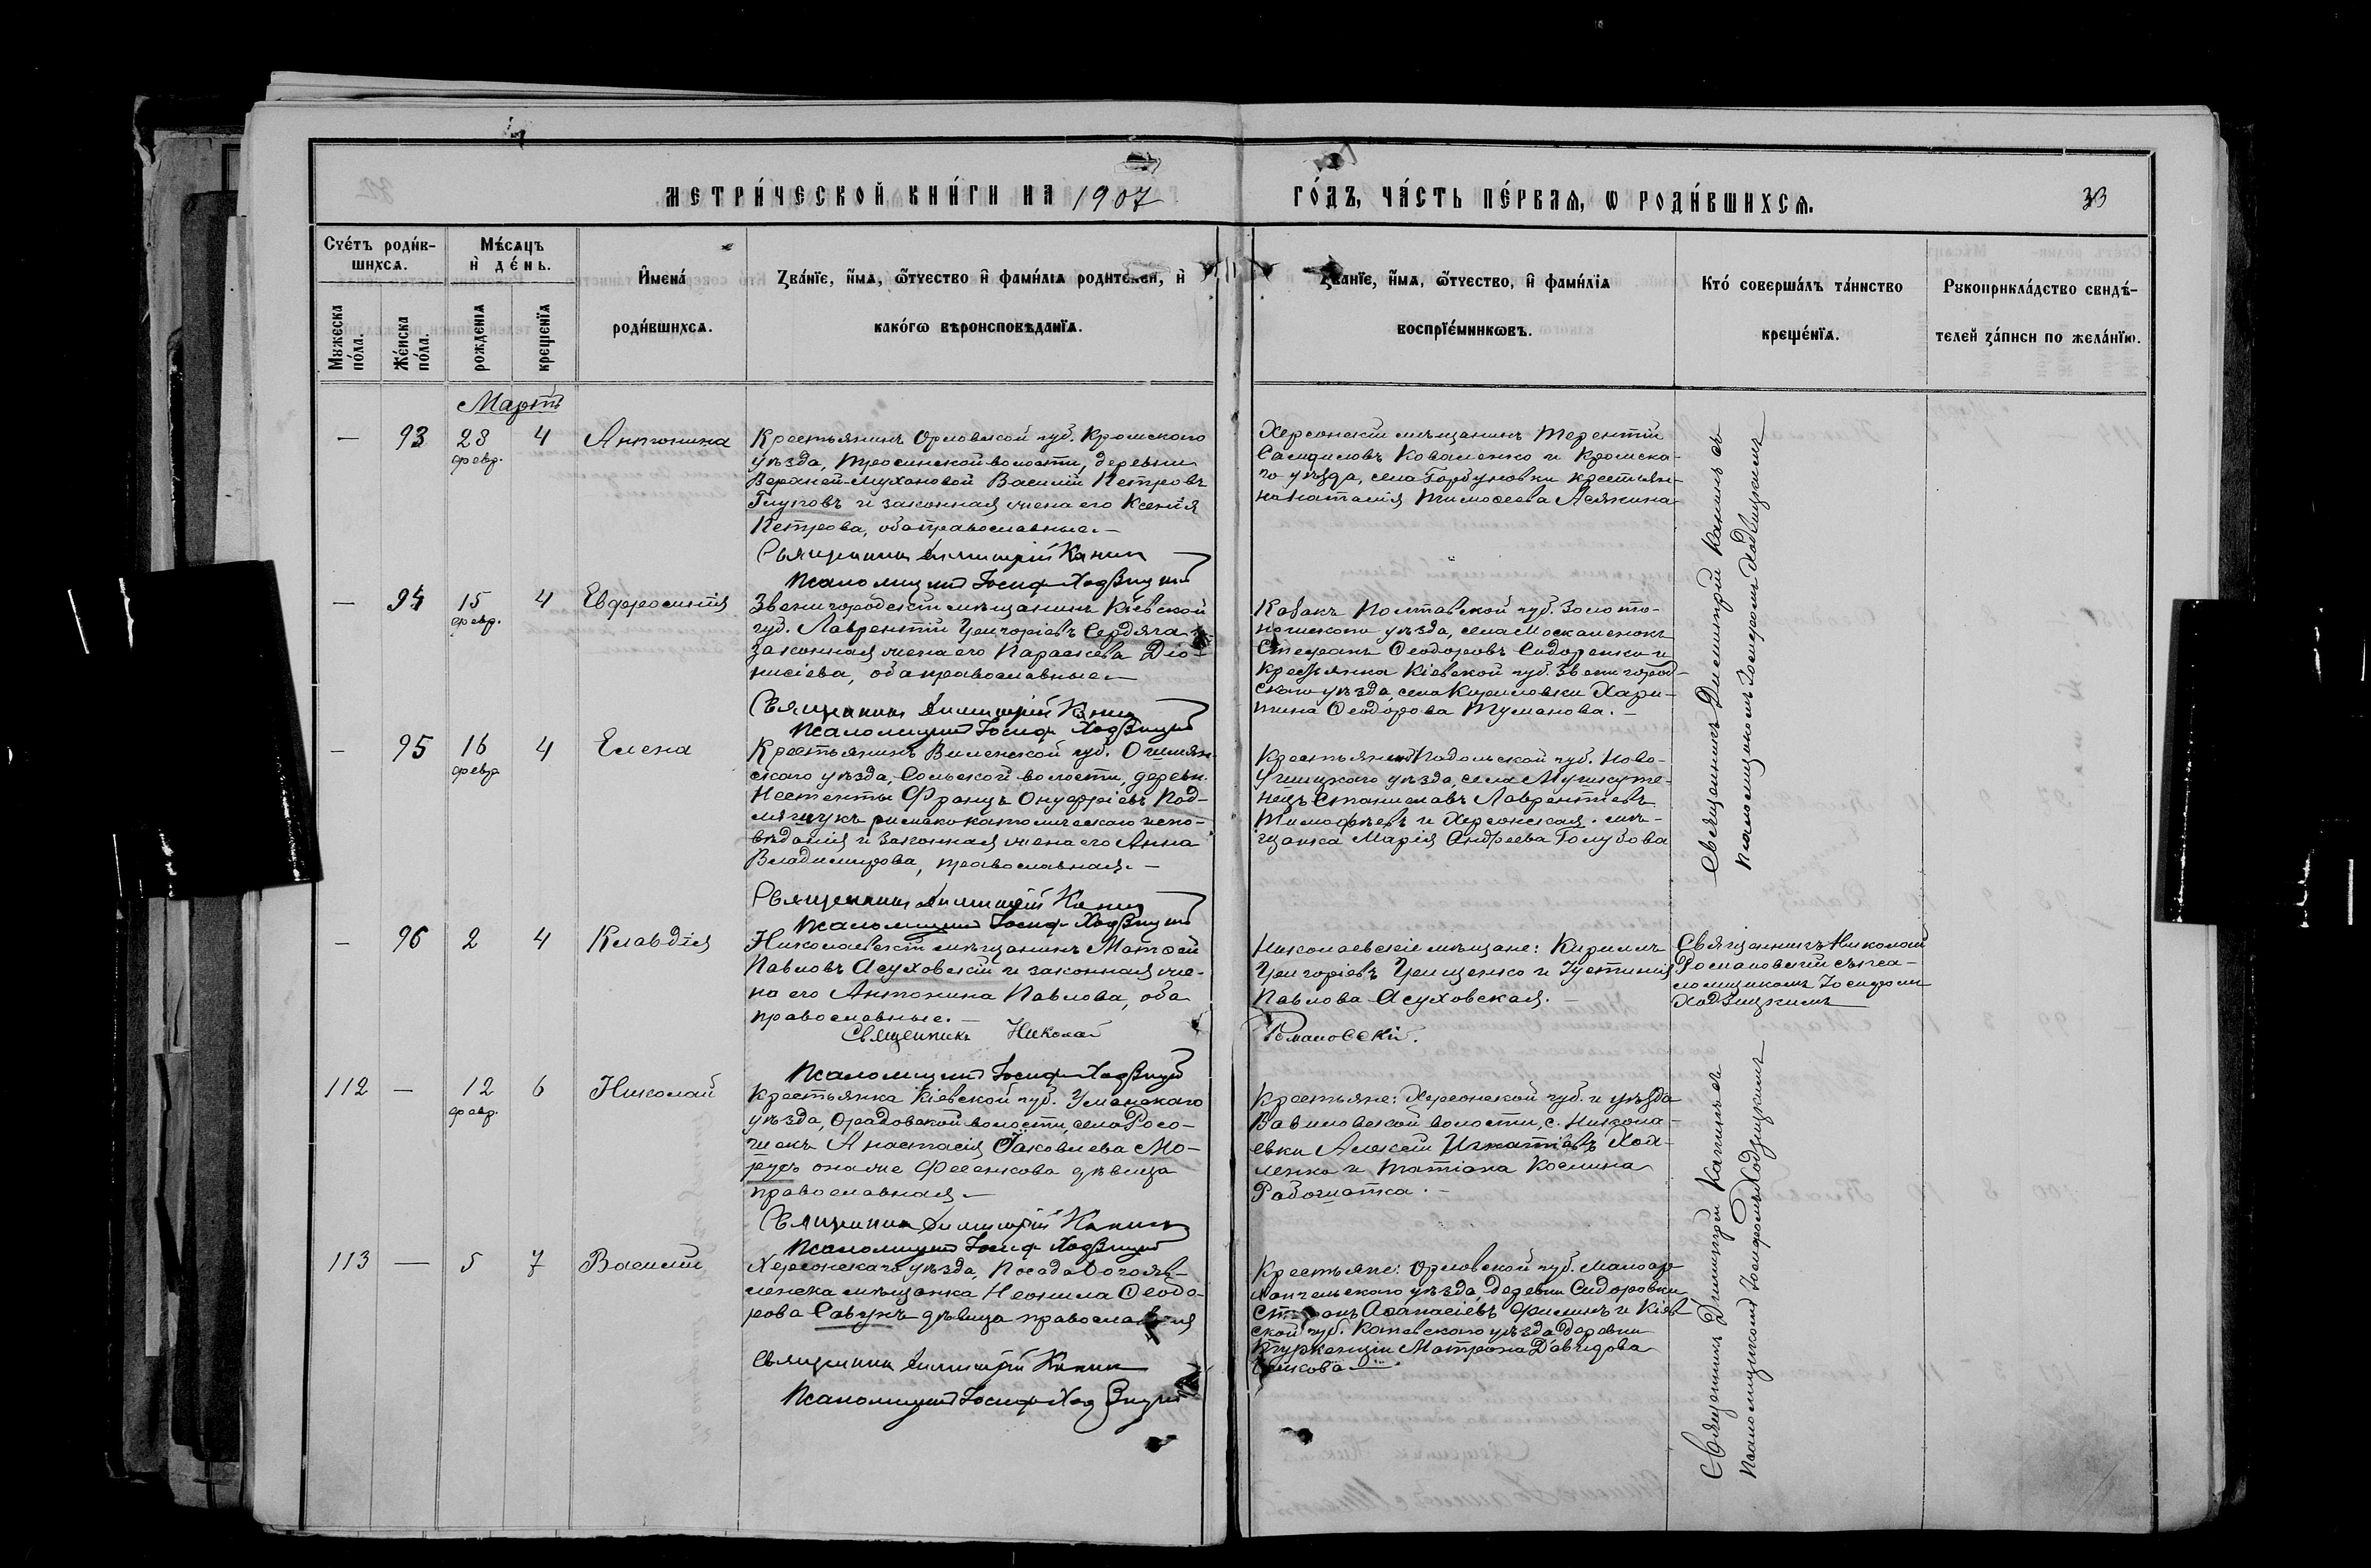 МЕТРИ́ЧЕСКОЙ КНИ́ГИ НА 1907 ГО́ДЪ, ЧА́СТЬ ПЕ́РВАѦ, Ѡ РОДИ́ВШИХСѦ.
33
Сче́тъ роди́в-
шихсѧ.
Мꙋжеска
по́ла.
Же́нска
по́ла.
Мѣ́сѧцъ
и҆ де́нь.
рожденїѧ
крещенїѧ
И҆мена̀
роди́вшихсѧ.
Зва́нїе, и҆́мѧ, ѻ҆́тчество и҆ фами́лїѧ родителей, и҆
како́гѡ вѣроисповѣ́данїѧ.
Зва́нїе, и҆́мѧ, ѻ҆́тчество, и҆ фами́лїѧ
воспрїе́мникѡвъ.
Кто́ соверша́лъ та́инство
креще́нїѧ.
Рꙋкоприкла́дство свидѣ́-
телей за́писи по жела́нїю.
Мартъ
— 93 28 февр. 4 Антонина
Крестьянинъ Орловской губ. Кромского
уѣзда, волости, деревни
Верхней-Мухановой Василій Петровъ
Глуповъ и законная жена его Ксенія
Петрова, оба православные.—
Священникъ Димитрій Канинъ
Псаломщикъ Іосифъ Ходзицкій
Херсонскій мѣщанинъ Терентій
Самуиловъ Коваленко и Кромска-
го уѣзда, села Горбуновки крестьян-
ка Наталія Тимоѳеева
Священникъ Димитрій Канинъ съ
псаломщикомъ Іосифомъ Ходзицкимъ
— 94 15 февр. 4 Евфросинія
Звенигородскій мѣщанинъ Кіевской
губ. Лаврентій Григоріевъ Сердяга и
законная жена его Параскева Діо-
нисіева, оба православные—
Священникъ Димитрій Канинъ
Псаломщикъ Іосифъ Ходзицкій
Козакъ Полтавской губ. Золото-
ношскаго уѣзда, села Москаленокъ
Стефанъ Ѳеодоровъ Сидоренко и
крестьянка Кіевской губ. Звенигород-
скаго уѣзда, села Кирилловки Хари-
тина Ѳеодорова Туманова.—
— 95 16 февр. 4 Елена
Крестьянинъ Виленской губ. Ошмян-
скаго уѣзда, Сольской волости, деревн.
Францъ Онуфріевъ Под-
римско-католическаго испо-
вѣданія и законная жена его Анна
Владимирова, православная.—
Священникъ Димитрій Канинъ
Псаломщикъ Іосифъ Ходзицкій
Крестьянинъ Подольской губ. Ново-
Ушицкаго уѣзда, села
Станиславъ Лаврентіевъ
Тимофѣевъ и Херсонская мѣ-
щанка Марія Андреева Голубова
— 96 2 4 Клавдія
Николаевскій мѣщанинъ Матѳей
Павловъ Асуховскій и законная же-
на его Антонина Павлова, оба
православные.—
Священникъ Николай Романовскій.
Псаломщикъ Іосифъ Ходзицкій
Николаевскіе мѣщане: Кириллъ
Григоріевъ Грищенко и Іустинія
Павлова Асуховская.—
Священникъ Николай
Романовскій съ пса-
ломщикомъ Іосифомъ
Ходзицкимъ
112 — 12 февр. 6 Николай
Крестьянка Кіевской губ. Уманскаго
уѣзда, Орадовской волости, села Росо-
Анастасія Яковлева Мо-
она же Фесенкова дѣвица
православная—
Священникъ Димитрій Канинъ
Псаломщикъ Іосифъ Ходзицкій
Крестьяне: Херсонской губ. и уѣзда
Вавиловской волости, с. Никола-
евки Алексій Игнатіевъ
и Татіана Космина
Священникъ Димитрій Канинъ съ
псаломщикомъ Іосифомъ Ходзицкимъ
113 — 5 7 Василій
Херсонскаго уѣзда, посада Богояв-
ленска мѣщанка Неонила Ѳеодо-
рова Савукъ дѣвица православная
Священникъ Димитрій Канинъ
Псаломщикъ Іосифъ Ходзицкій
Крестьяне: Орловской губ. Малоар-
хангельскаго уѣзда, деревни Сидоровки
Аѳанасіевъ Филинъ и Кіев
ской губ. Каневскаго уѣзда деревни
Матрона Давидова